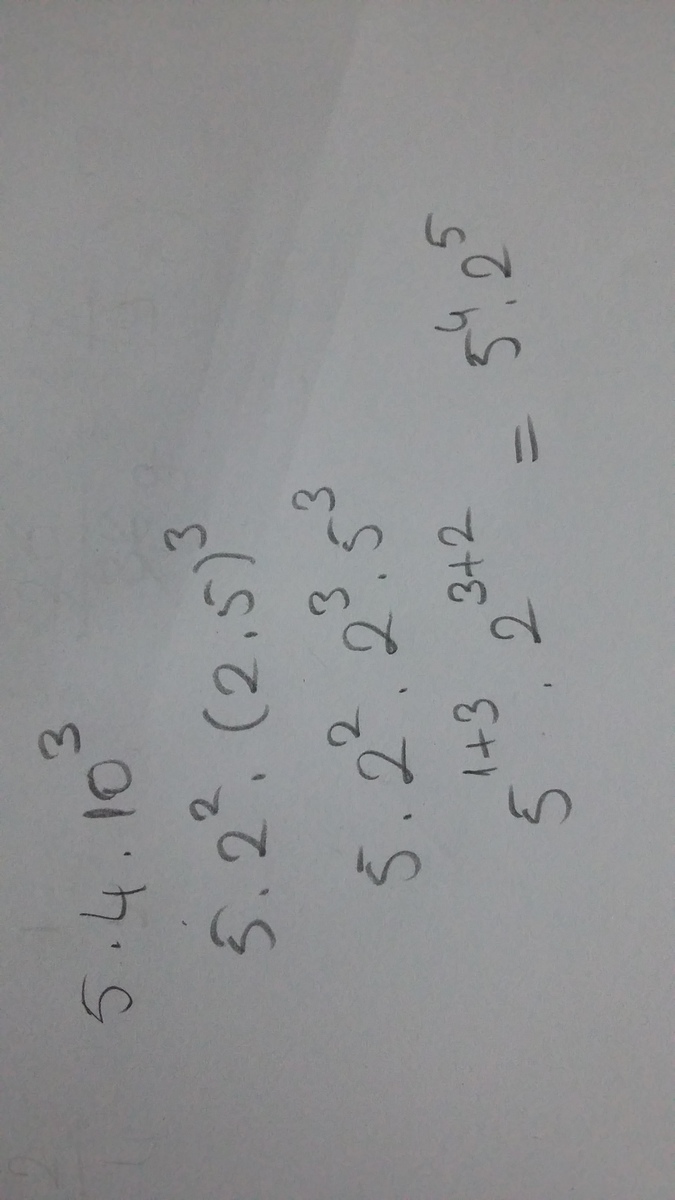 5.4.10³
5.2².(2.5)³
5.2².2³.5³
5¹⁺³.2³⁺² = 5⁴.2⁵